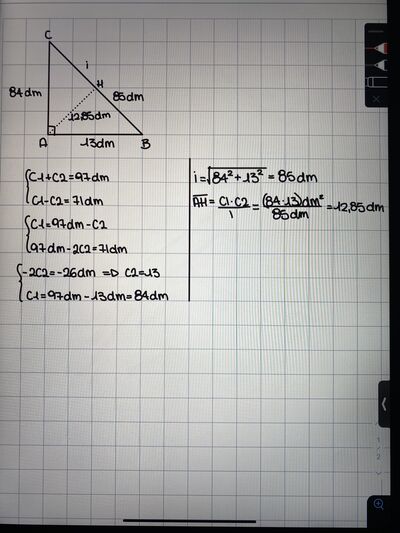 C
i
H
84dm
85dm
12,85dm
A
13dm
B
C1+C2=97dm
C1-C2=71dm
C1=97dm-C2
97dm-2C2=71dm
-2C2=-26dm => C2=13
C1=97dm-13dm=84dm
i=√84²+13² = 85dm
AH = C1·C2/i = (84·13)dm²/85dm = 12,85dm
1
2